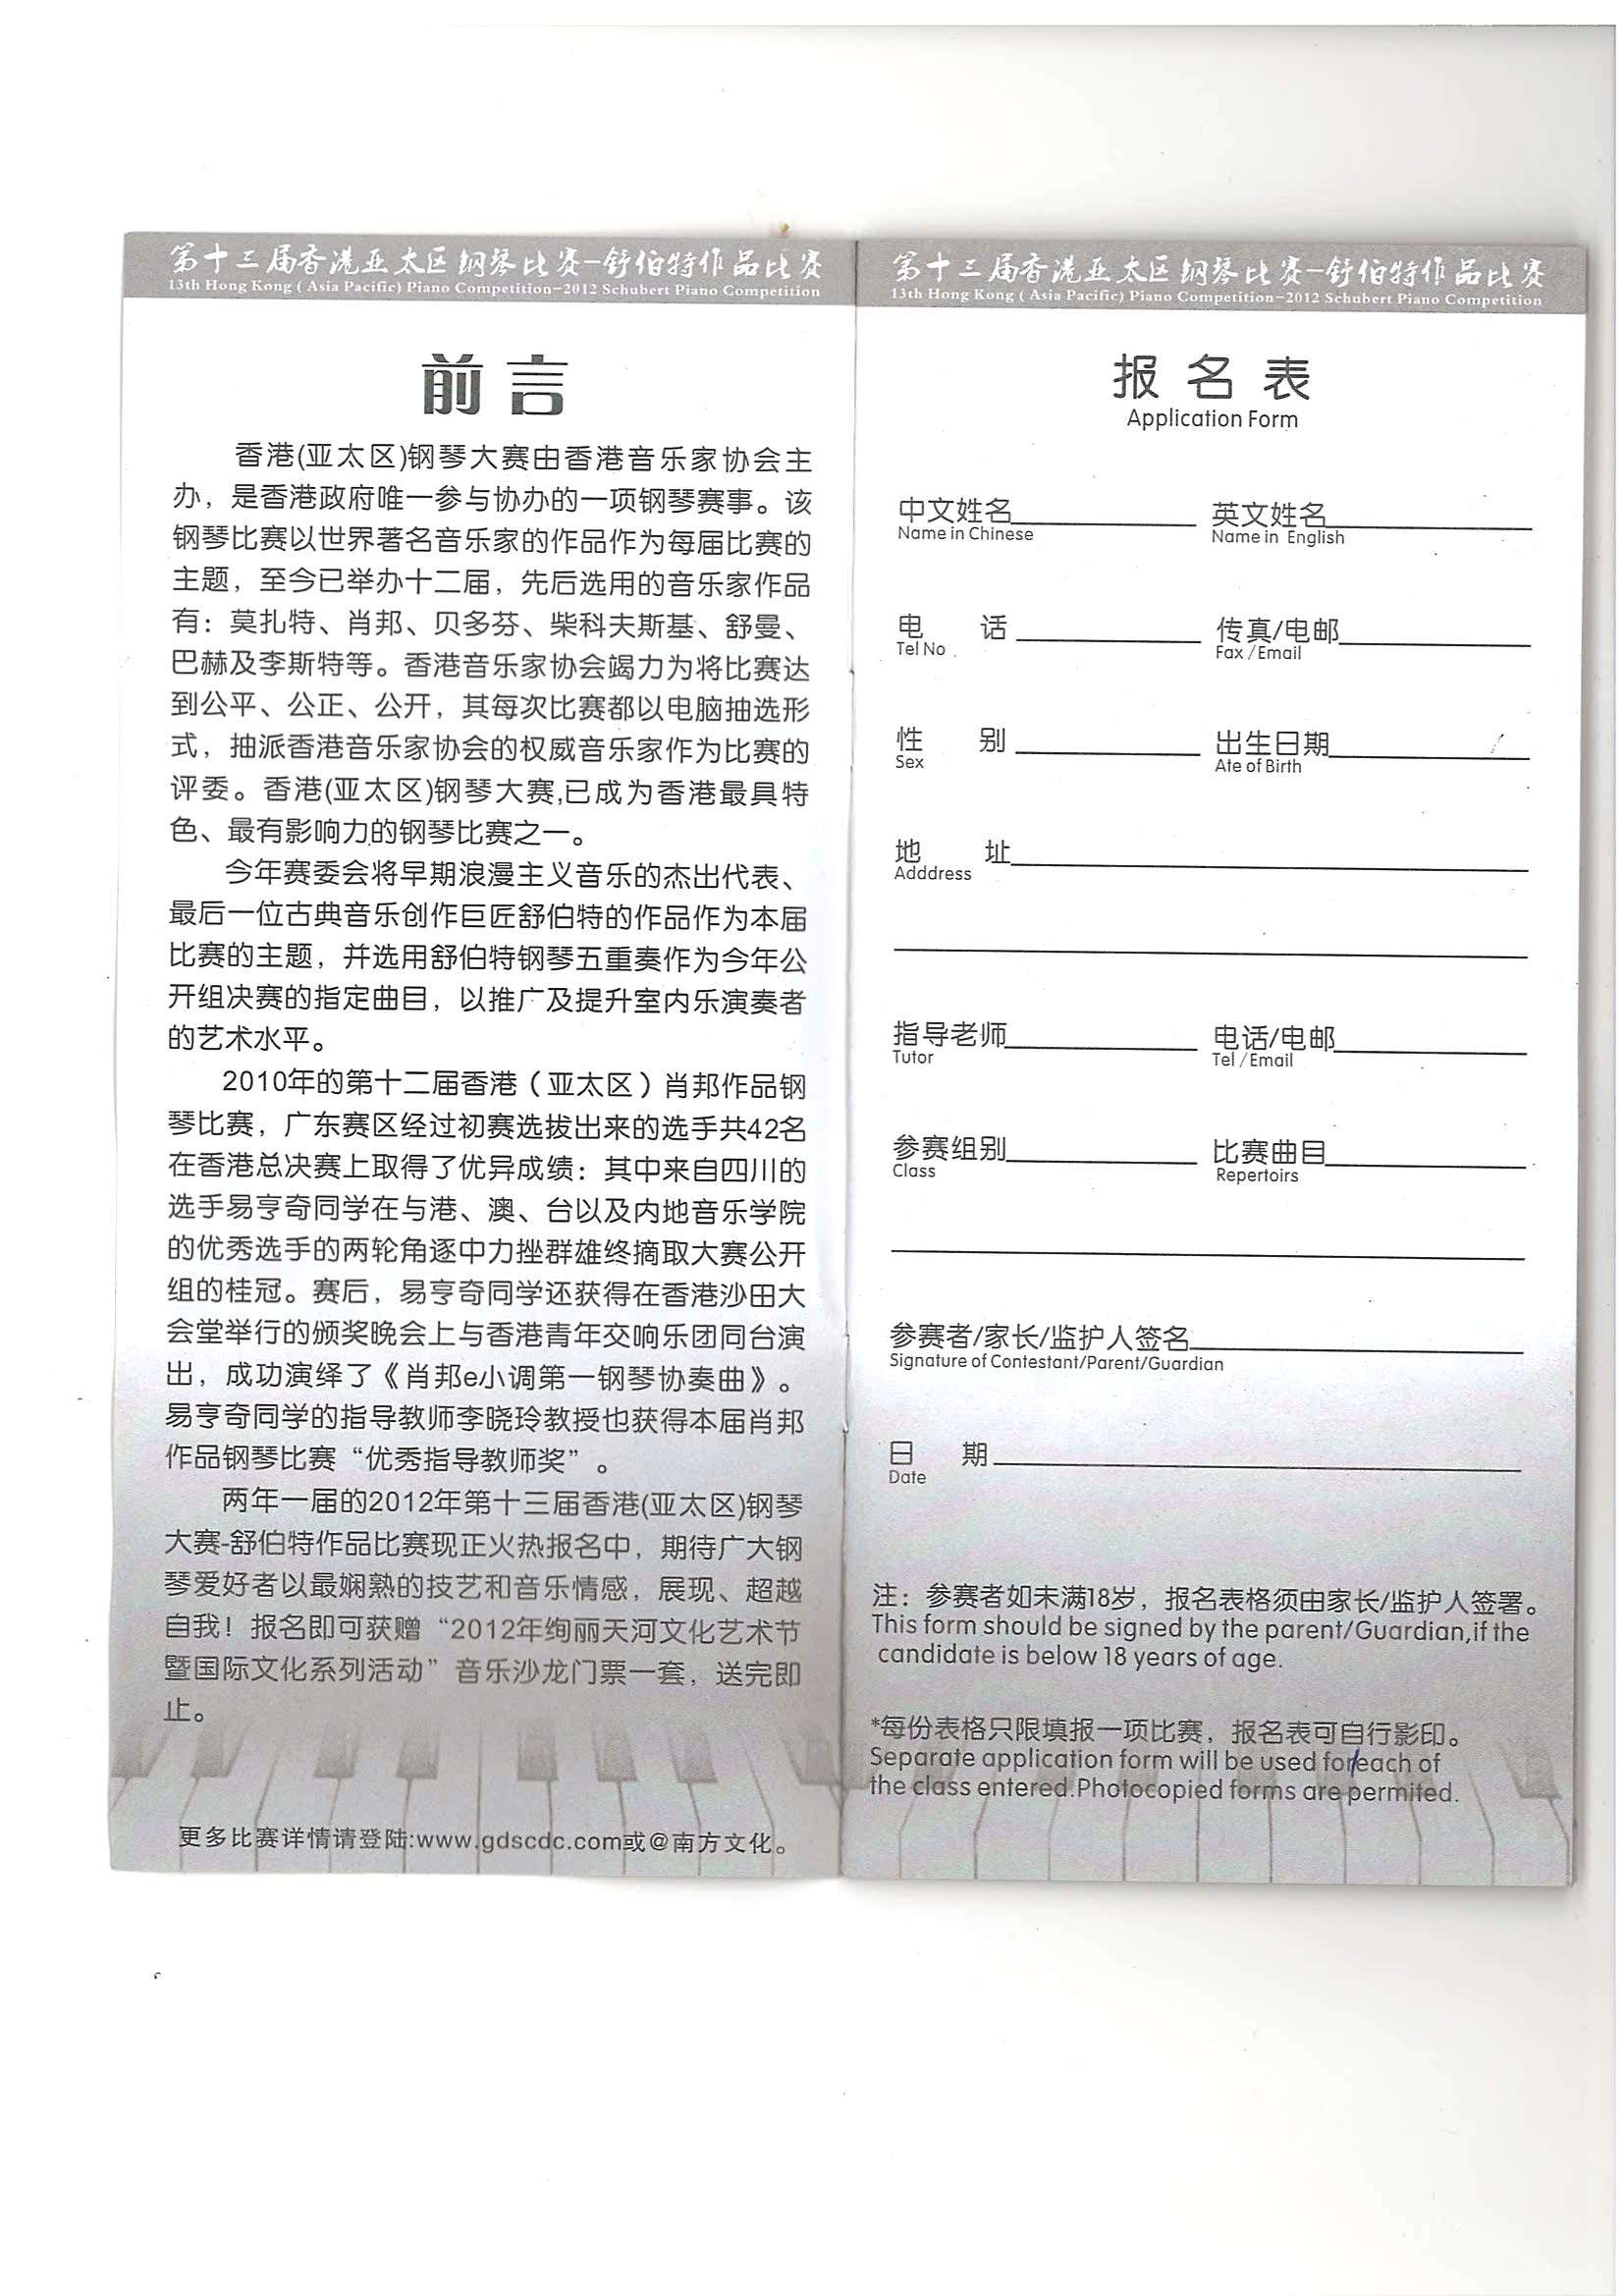 第十三届香港亚太区钢琴比赛-舒伯特作品比赛
13th Hong Kong ( Asia Pacific) Piano Competition-2012 Schubert Piano Competition
前言
香港(亚太区)钢琴大赛由香港音乐家协会主
办，是香港政府唯一参与协办的一项钢琴赛事。该
钢琴比赛以世界著名音乐家的作品作为每届比赛的
主题，至今已举办十二届，先后选用的音乐家作品
有：莫扎特、肖邦、贝多芬、柴科夫斯基、舒曼、
巴赫及李斯特等。香港音乐家协会竭力为将比赛达
到公平、公正、公开，其每次比赛都以电脑抽选形
式，抽派香港音乐家协会的权威音乐家作为比赛的
评委。香港(亚太区)钢琴大赛,已成为香港最具特
色、最有影响力的钢琴比赛之一。
今年赛委会将早期浪漫主义音乐的杰出代表、
最后一位古典音乐创作巨匠舒伯特的作品作为本届
比赛的主题，并选用舒伯特钢琴五重奏作为今年公
开组决赛的指定曲目，以推广及提升室内乐演奏者
的艺术水平。
2010年的第十二届香港（亚太区）肖邦作品钢
琴比赛，广东赛区经过初赛选拔出来的选手共42名
在香港总决赛上取得了优异成绩：其中来自四川的
选手易亨奇同学在与港、澳、台以及内地音乐学院
的优秀选手的两轮角逐中力挫群雄终摘取大赛公开
组的桂冠。赛后，易亨奇同学还获得在香港沙田大
会堂举行的颁奖晚会上与香港青年交响乐团同台演
出，成功演绎了《肖邦e小调第一钢琴协奏曲》。
易亨奇同学的指导教师李晓玲教授也获得本届肖邦
作品钢琴比赛“优秀指导教师奖”。
两年一届的2012年第十三届香港(亚太区)钢琴
大赛-舒伯特作品比赛现正火热报名中，期待广大钢
琴爱好者以最娴熟的技艺和音乐情感，展现、超越
自我！报名即可获赠“2012年绚丽天河文化艺术节
暨国际文化系列活动”音乐沙龙门票一套，送完即
止。
更多比赛详情请登陆:www.gdscdc.com或@南方文化。
第十三届香港亚太区钢琴比赛-舒伯特作品比赛
13th Hong Kong ( Asia Pacific) Piano Competition-2012 Schubert Piano Competition
报名表
Application Form
中文姓名 英文姓名
Name in Chinese Name in English
电 话 传真/电邮
Tel No . Fax /Email
性 别 出生日期
Sex Ate of Birth
地 址
Adddress
指导老师 电话/电邮
Tutor Tel /Email
参赛组别 比赛曲目
Class Repertoirs
参赛者/家长/监护人签名
Signature of Contestant/Parent/Guardian
日 期
Date
注：参赛者如未满18岁，报名表格须由家长/监护人签署。
This form should be signed by the parent/Guardian,if the
candidate is below 18 years of age.
*每份表格只限填报一项比赛，报名表可自行影印。
Separate application form will be used for/each of
the class entered.Photocopied forms are permited.